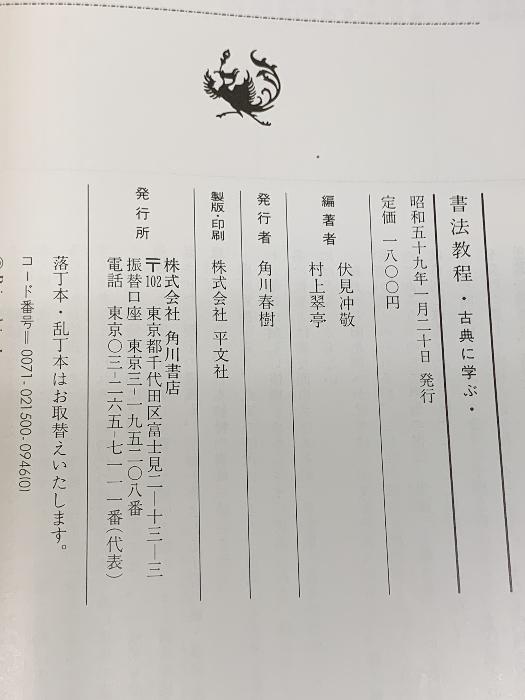 書法教程・古典に学ぶ・
昭和五十九年一月二十日 発行
定価 一八〇〇円
編著者
伏見冲敬
村上翠亭
発行者 角川春樹
製版・印刷 株式会社 平文社
発行所
株式会社 角川書店
〒102 東京都千代田区富士見二―十三―三
振替口座 東京三―一九五二〇八番
電話 東京〇三―二六五―七一一一番(代表)
落丁本・乱丁本はお取替えいたします。
コード番号=0071-021500-0946(0)